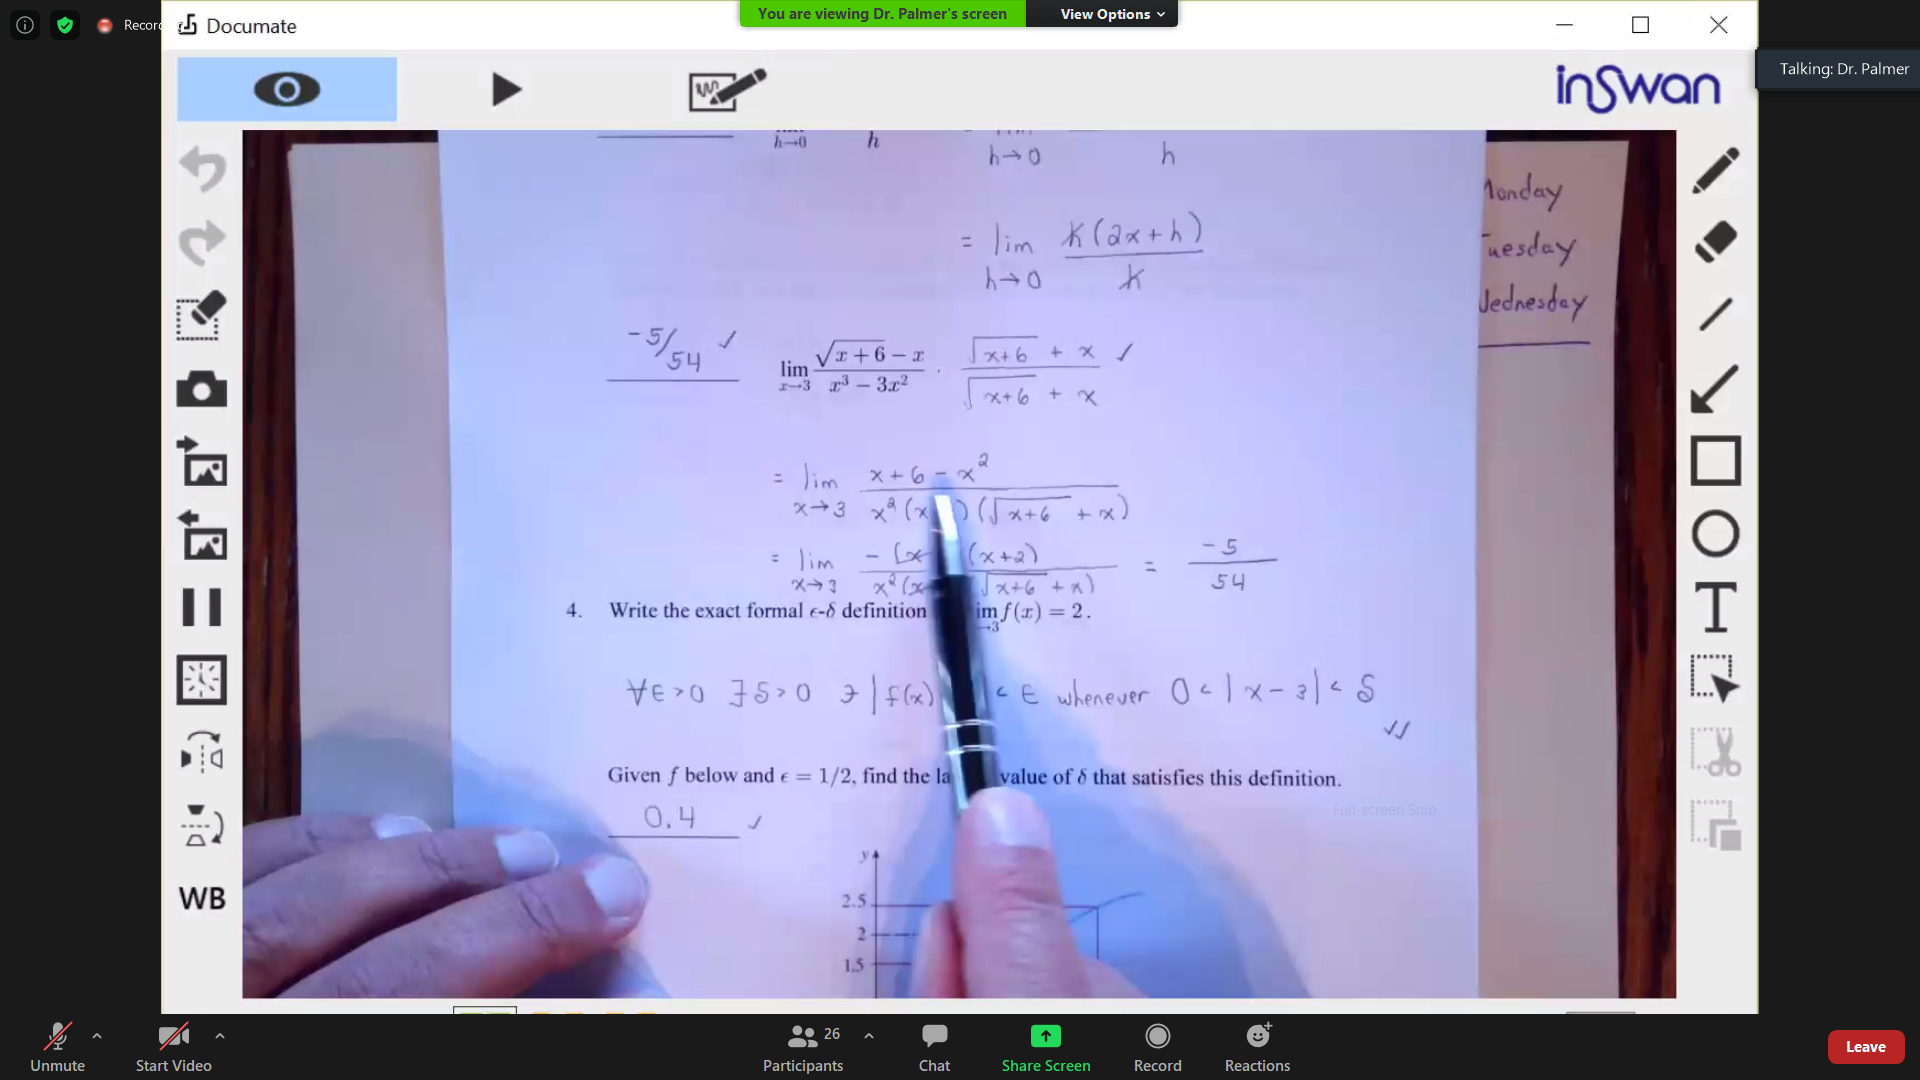 Recor
Documate
You are viewing Dr. Palmer's screen
View Options
Talking: Dr. Palmer
inswan
h→0 h
h→0 h
= lim h(2x+h)
h→0 h
Monday
Tuesday
Wednesday
-5/54 ✓
lim √(x+6) − x / x³ − 3x² · √(x+6) + x / √(x+6) + x ✓
x→3
= lim x+6−x² / x²(x )(√(x+6) + x)
x→3
= lim −(x (x+2) / x²(x √(x+6) + x) = −5/54
x→3
4. Write the exact formal ϵ-δ definition im f(x) = 2.
→3
∀ϵ>0 ∃δ>0 ∋ |f(x) < ϵ whenever 0<|x−3|<δ
✓✓
Given f below and ϵ = 1/2, find the la value of δ that satisfies this definition.
0.4 ✓
Full-screen Snip
y
2.5
2
1.5
T
WB
Unmute
Start Video
Participants
26
Chat
Share Screen
Record
Reactions
Leave